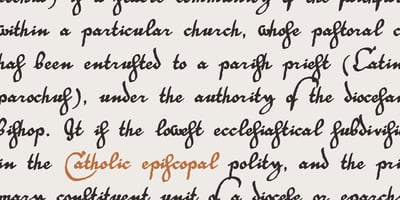 is a stable community of the faithful
within a particular church, whose pastoral c
has been entrusted to a parish priest (Latin
parochus), under the authority of the diocesan
Bishop. It is the lowest ecclesiastical subdivisi
in the Catholic episcopal polity, and the pri
mary constituent unit of a diocese or eparch